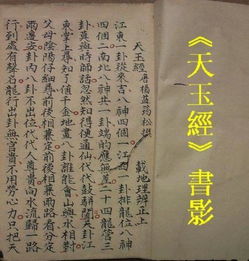 《天玉經》書影
載地理辨正上
天玉經 唐楊益筠松撰
江東一卦從來吉八神四個一江西一卦排龍位八神
四個二南北八神共一卦端的應無差二十四龍管三
卦莫與時師話忽然知得便通仙代代鼓駢闐天卦江
東掌上尋知了值千金地畫八卦誰能會山與水相對
父母陰陽仔細尋前後相兼定前後相兼兩路看分定
兩邊安卦內八卦不出位代代人尊貴向水流歸一路
行到處有聲名龍行出卦無官貴不用勞心力只把天